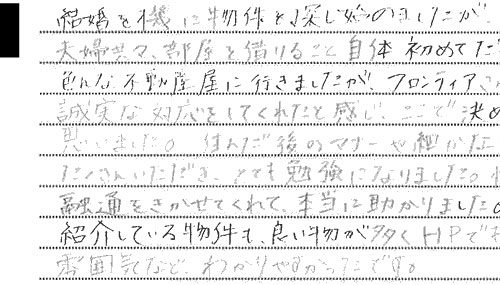 結婚を機に物件を探し始めましたが、
夫婦共々、部屋を借りること自体初めてだ
色んな不動産屋に行きましたが、フロンティアさ
誠実な対応をしてくれたと感じ、ここで決め
思いました。住んだ後のマナーや細かな
たくさんいただき、とても勉強になりました。
融通をきかせてくれて、本当に助かりました。
紹介している物件も、良い物が多くHPで
雰囲気など、わかりやすかったです。